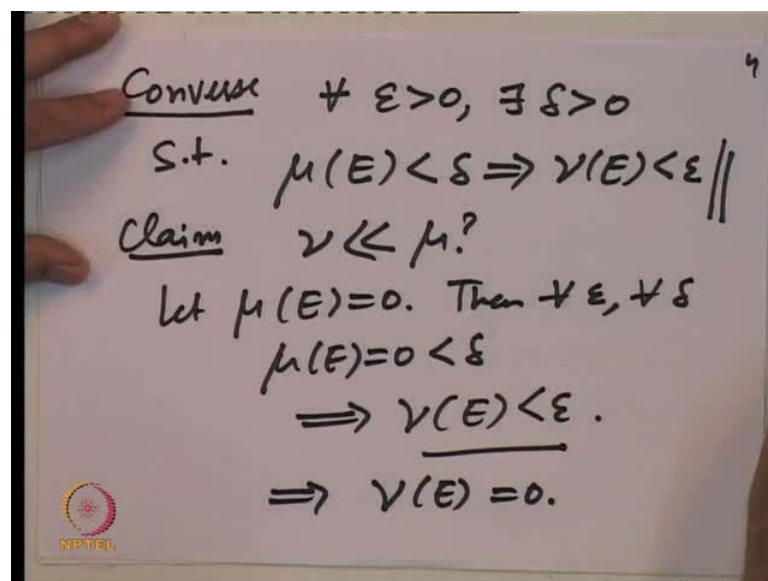 4
Converse ∀ ε>0, ∃ δ>0
s.t. μ(E)<δ ⇒ ν(E)<ε ||
Claim ν ≪ μ?
Let μ(E)=0. Then ∀ ε, ∀ δ
μ(E)=0<δ
⟹ ν(E)<ε.
⟹ ν(E)=0.
NPTEL